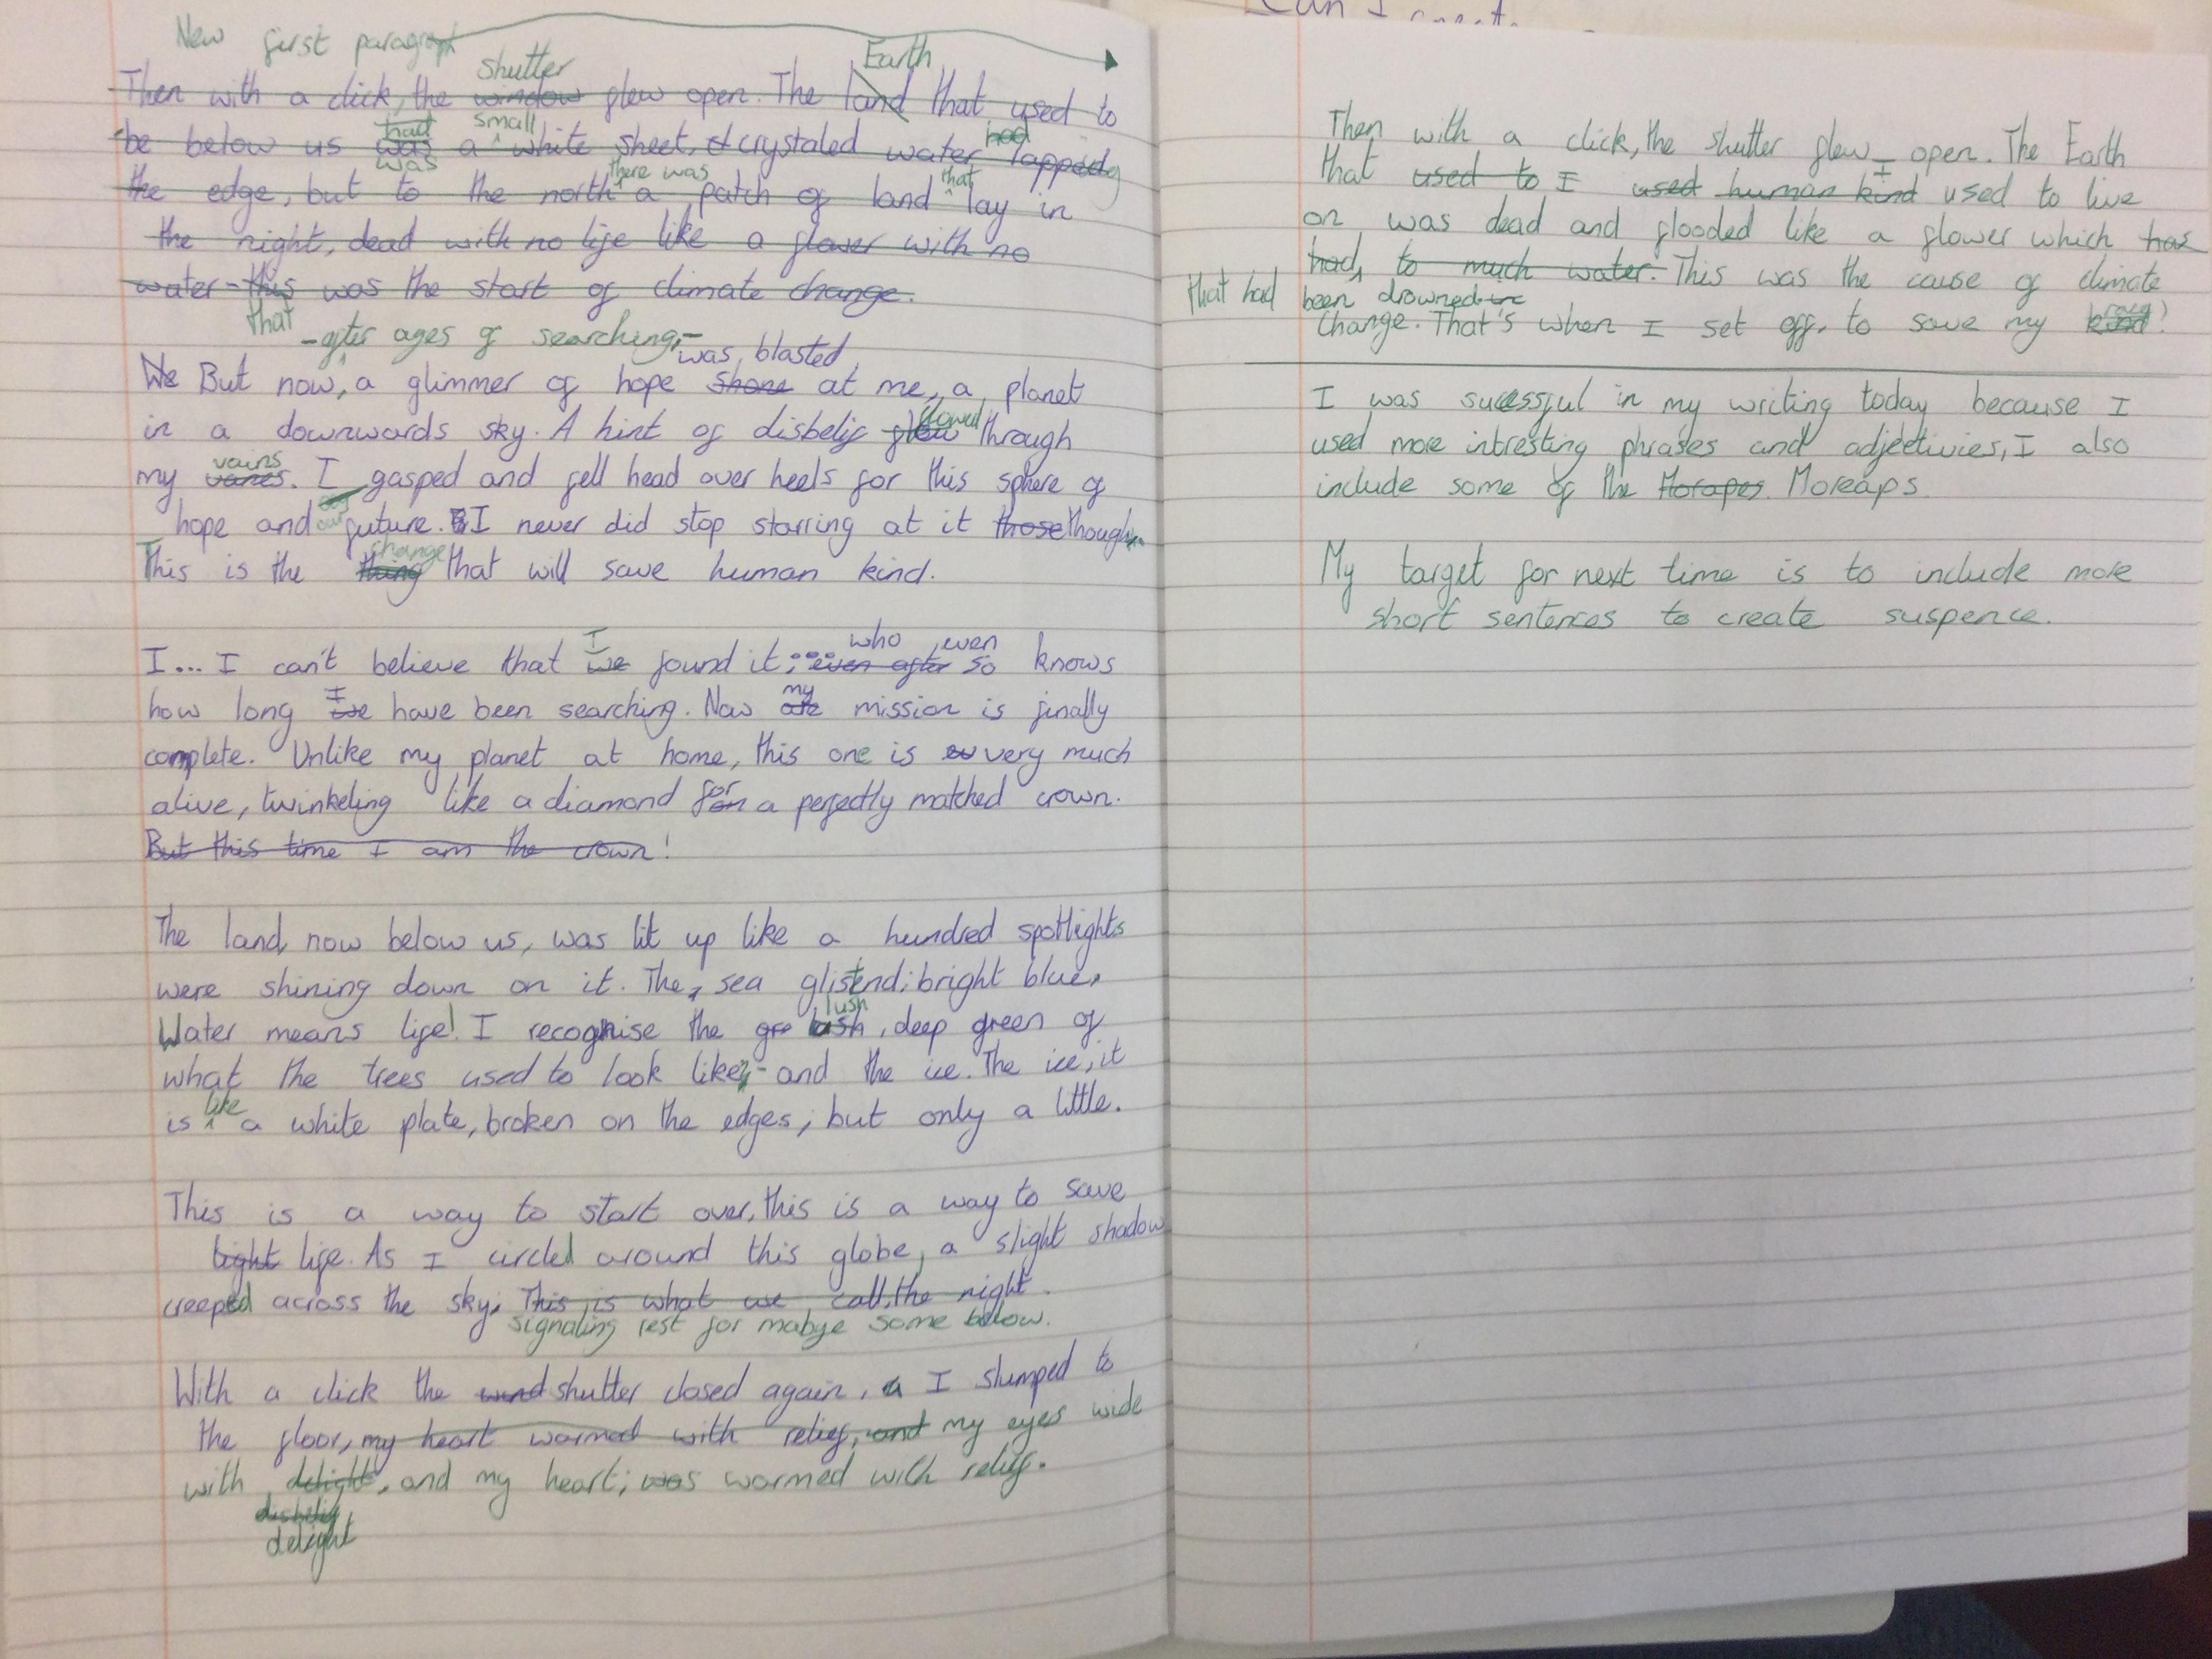 New first paragraph
shutter
Earth
Then with a click, the window flew open. The land that used to
had small had
be below us was a white sheet, crystaled water lapped
was there was that
the edge, but to the north a patch of land lay in
the night, dead with no life like a flower with no
water - this was the start of climate change.
that
- after ages of searching,-
was blasted
We But now, a glimmer of hope shone at me, a planet
in a downwards sky. A hint of disbelif flew flowed through
vains
my vanes. I gasped and fell head over heels for this sphere of
hope and our future. I never did stop starring at it those though...
change
This is the thing that will save human kind.
I who even
I... I can't believe that we found it; even after so knows
I my
how long we have been searching. Now are mission is finally
complete. Unlike my planet at home, this one is very much
for
alive, twinkeling like a diamond on a perfectly matched crown.
But this time I am the crown!
The land, now below us, was lit up like a hundred spotlights
were shining down on it. The, sea glistend: bright blue,
lush
Water means life! I recognise the gre lush, deep green of
what the trees used to look like - and the ice. The ice, it
like
is a white plate, broken on the edges; but only a little.
This is a way to start over, this is a way to save
light life. As I circled around this globe, a slight shadow
creeped across the sky, This is what we call the night.
signaling rest for mabye some below.
With a click the wind shutter closed again, a I slumped to
the floor, my heart warmed with relief, and my eyes wide
with delight, and my heart; was warmed with relif.
disbelif
delight
Can I
Then with a click, the shutter flew open. The Earth
I
that used to I used human kind used to live
on, was dead and flooded like a flower which has
had, to much water. This was the cause of climate
that had been drowned
change. That's when I set off, to save my kind!
I was sucessful in my writing today because I
used more intresting phrases and adjectivies, I also
include some of the Morapes Moreaps.
My target for next time is to include more
short sentences to create suspence.